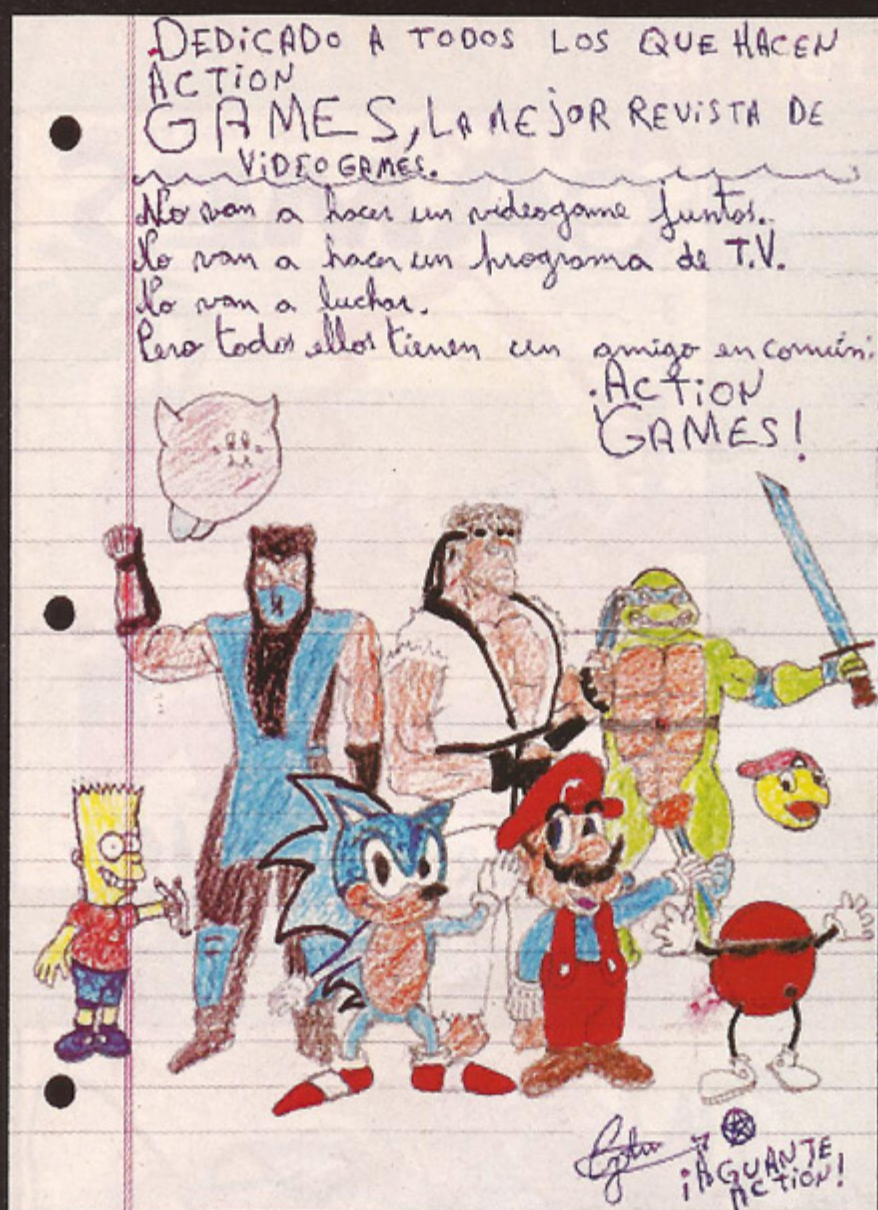 DEDICADO A TODOS LOS QUE HACEN
ACTION
GAMES, LA MEJOR REVISTA DE
VIDEOGAMES.
No van a hacer un videogame juntos.
No van a hacer un programa de T.V.
No van a luchar.
Pero todos ellos tienen un amigo en común:
¡ACTION
GAMES!
M
¡AGUANTE
ACTION!